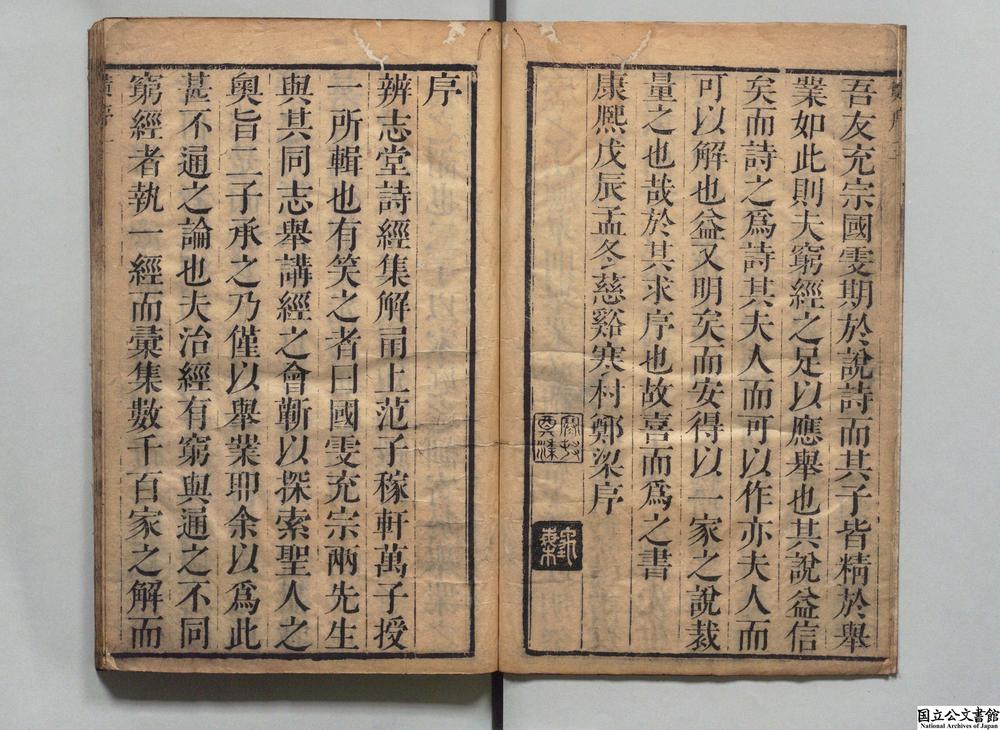 吾友充宗國雯期於說詩而其子皆精於舉
業如此則夫窮經之足以應舉也其說益信
矣而詩之爲詩其夫人而可以作亦夫人而
可以解也益又明矣而安得以一家之說裁
量之也哉於其求序也故喜而爲之書
康熈戊辰孟冬慈谿寒村鄭梁序
序
辨志堂詩經集解甬上范子稼軒萬子授
一所輯也有笑之者曰國雯充宗兩先生
與其同志舉講經之會蘄以探索聖人之
奥旨二子承之乃僅以舉業耶余以爲此
甚不通之論也夫治經有窮與通之不同
窮經者執一經而彚集數千百家之解而
国立公文書館
National Archives of Japan